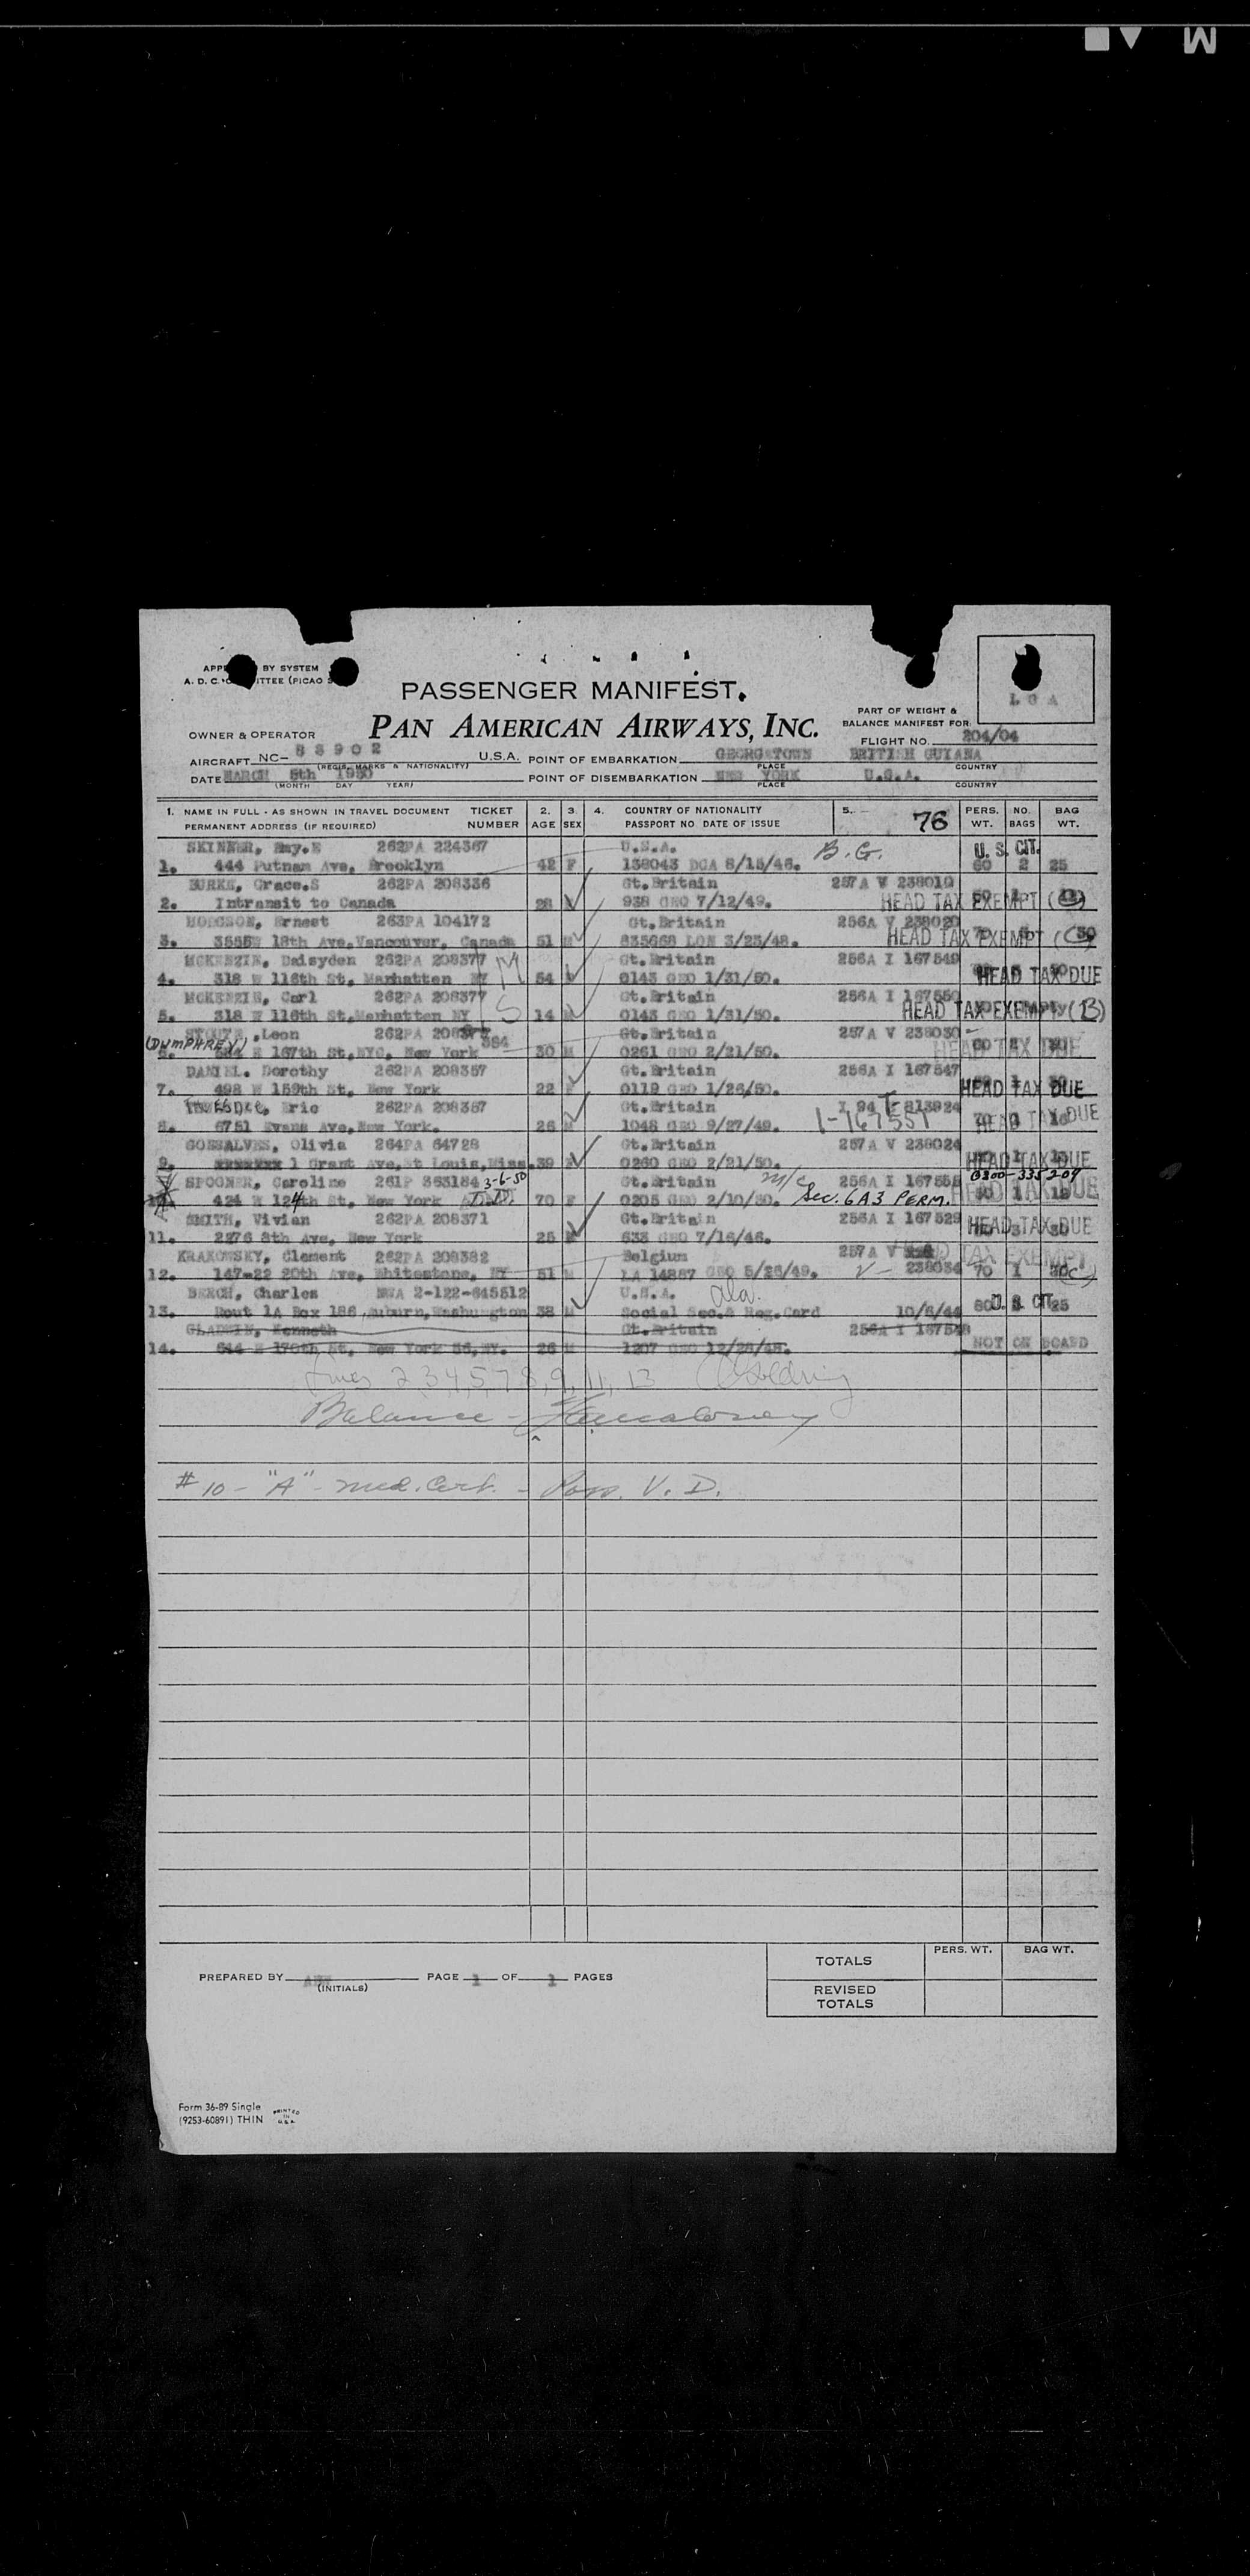 M
BY SYSTEM
A. D. C.
PASSENGER MANIFEST.
PAN AMERICAN AIRWAYS, INC.
PART OF WEIGHT &
BALANCE MANIFEST FOR:
OWNER & OPERATOR
FLIGHT NO. 204/04
AIRCRAFT NC- 88902 U.S.A. POINT OF EMBARKATION GEORGETOWN BRITISH GUIANA
(REGIS. MARKS & NATIONALITY) PLACE COUNTRY
DATE MARCH 5th 1950 POINT OF DISEMBARKATION NEW YORK U.S.A.
(MONTH DAY YEAR) PLACE COUNTRY
1. NAME IN FULL - AS SHOWN IN TRAVEL DOCUMENT TICKET 2. 3. 4. COUNTRY OF NATIONALITY 5. 76 PERS. NO. BAG
PERMANENT ADDRESS (IF REQUIRED) NUMBER AGE SEX PASSPORT NO. DATE OF ISSUE WT. BAGS WT.
SKINNER, May.E 262PA 224367 U.S.A. B.G. U. S. CIT.
1. 444 Putnam Ave, Brooklyn 42 F 138043 DCA 8/15/46. 60 2 25
BURKE, Grace.S 262PA 208336 Gt.Britain 257A V 238019
2. Intransit to Canada 28 938 GEO 7/12/49. HEAD TAX EXEMPT
HODGSON, Ernest 263PA 104172 Gt.Britain 256A V 238020
3. 3555W 18th Ave,Vancouver, Canada 51 M 835668 LON 3/23/48. HEAD TAX EXEMPT
MCKENZIE, Daisyden 262PA 208377 M Gt.Britain 256A I 167549
4. 318 W 116th St, Manhatten NY 54 0143 GEO 1/31/50. HEAD TAX DUE
MCKENZIE, Carl 262PA 208377 S Gt.Britain 256A I 167550
5. 318 W 116th St,Manhatten NY 14 M 0143 GEO 1/31/50. HEAD TAX EXEMPT (B)
,Leon 262PA Gt.Britain 257A V 238030
(DUMPHREY) 384
6. 167th St,NYC, New York 30 M 0261 GEO 2/21/50. HEAD TAX DUE
DANIEL. Dorothy 262PA 208357 Gt.Britain 256A I 167547
7. 498 W 159th St, New York 22 F 0119 GEO 1/26/50. HEAD TAX DUE
Eric 262PA 208367 Gt.Britain I 94 T 813924
8. 6751 Evans Ave,New York. 26 M 1048 GEO 9/27/49. I-167551 HEAD TAX DUE
GONSALVES, Olivia 264PA 64728 Gt.Britain 257A V 238024
9. 1 Grant Ave,St Louis,Miss. 39 0260 GEO 2/21/50. HEAD TAX DUE
SPOONER, Caroline 261P 363184 3-6-50 Gt.Britain M/C 256A I 0300-335209
10. 424 W 124th St, New York 70 F 0205 GEO 2/10/50. Sec. 6A3 PERM. HEAD TAX DUE
SMITH, Vivian 262PA 208371 Gt.Britain 256A I 167529
11. 2276 8th Ave, New York 25 633 GEO 7/16/46. HEAD TAX DUE
KRAKOWSKY, Clement 262PA 208382 Belgium 257A V HEAD TAX EXEMPT
12. 147-22 20th Ave, Whitestone, NY 51 M LA 14887 GEO 5/26/49. V- 238034 70 1 30 (C)
BERCH, Charles NWA 2-122-645512 U.S.A. Ala.
13. Rout 1A Box 186,Auburn,Washington 38 M Social Sec.& Reg.Card 10/5/44 80 U. S. CIT. 25
GLADWIN, Kenneth Gt.Britain 256A I 167548
14. 176th St, New York 56,NY. 26 M 1207 GEO 12/28/48. NOT ON BOARD
Lines 2,3,4,5,7,8,9,11,13
Balance -
#10 - "A" - med. Cert. - Poss. V. D.
TOTALS PERS. WT. BAG WT.
PREPARED BY PAGE 1 OF 1 PAGES
(INITIALS)
REVISED
TOTALS
Form 36-89 Single
(9253-60891) THIN
PRINTED
IN
U.S.A.